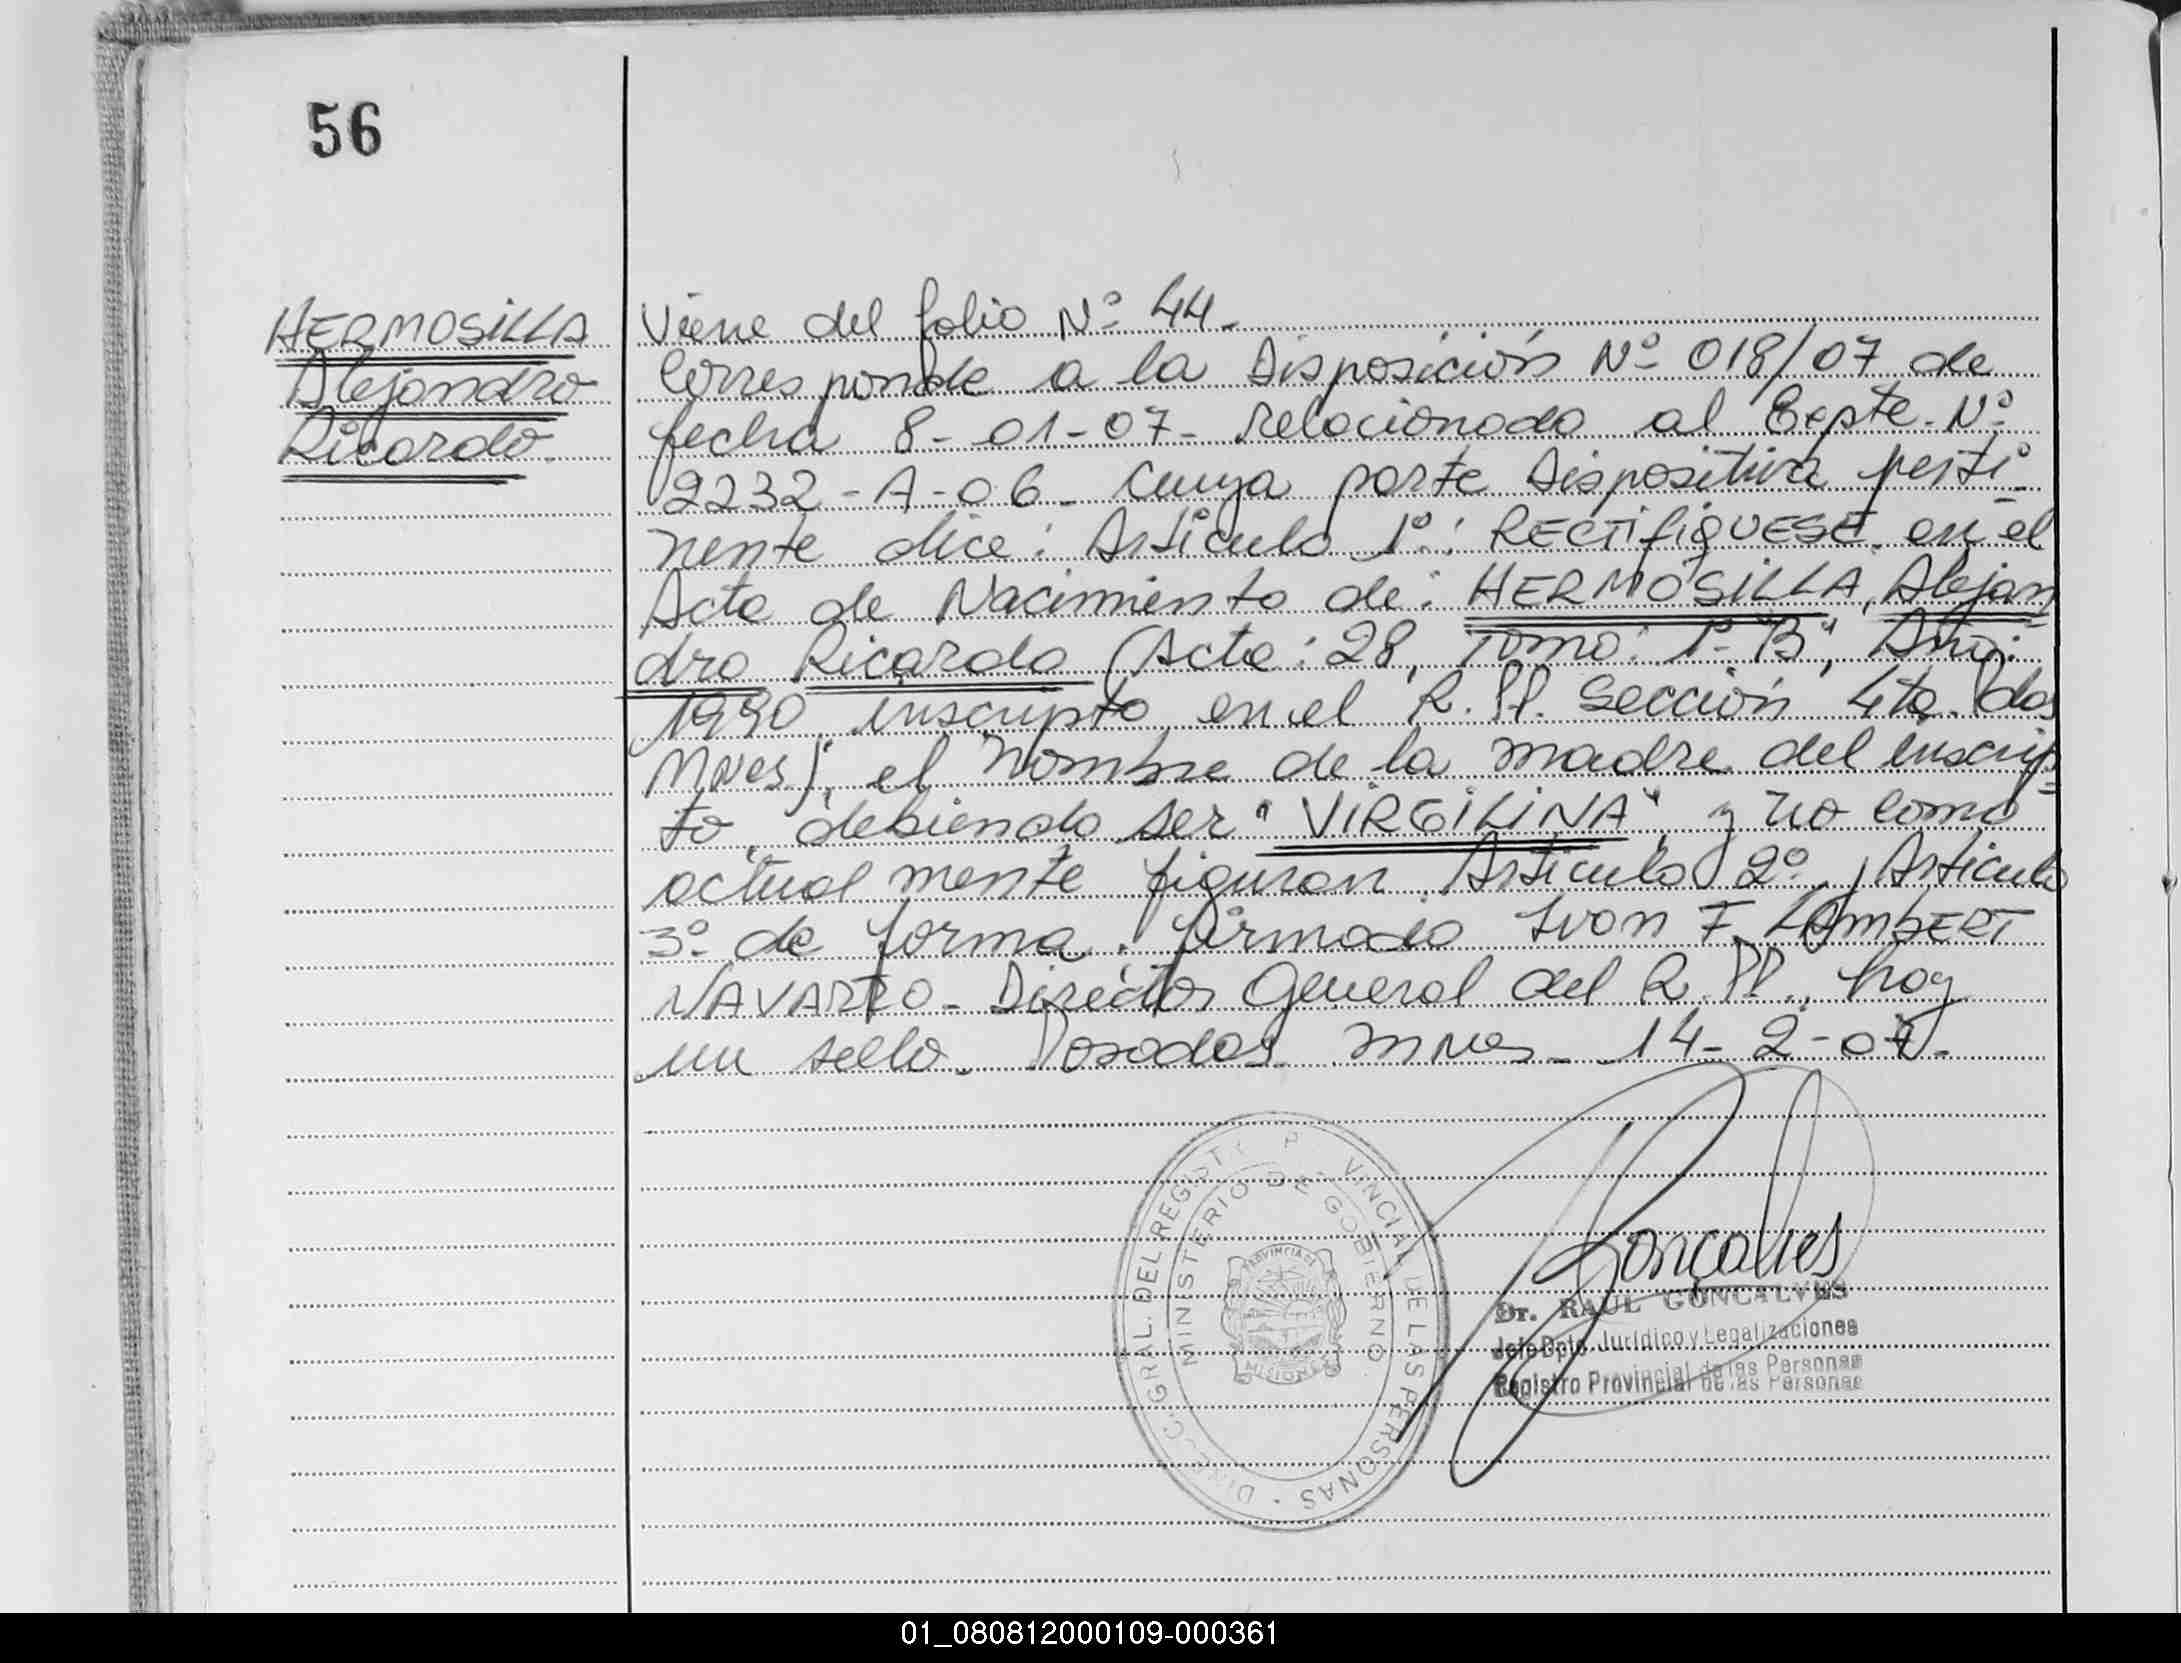 56
HERMOSILLA
Alejandro
Ricardo.
Viene del folio Nº 44.
Corresponde a la Disposición Nº 018/07 de
fecha 8-01-07- relacionada al Expte. Nº
2232-A-06. Cuya parte Dispositiva perti-
nente dice: Articulo 1º: RECTIFIQUESE en el
Acta de Nacimiento de: HERMOSILLA, Alejan
dro Ricardo (Acta: 28, Tomo: 1º "B", Año:
1990 inscripto en el R.PP. Sección 4ta. Pdas
Mnes), el nombre de la madre del inscrip-
to, debiendo ser "VIRGILINA" y no como
actualmente figuran. Articulo 2º, Articulo
3º de forma. firmado Ivon F. LAMBERT
NAVARRO- Director General del R.PP., hay
un sello. Posadas Mnes- 14-2-07.
DIRECC. GRAL. DEL REGISTRO PROVINCIAL DE LAS PERSONAS
MINISTERIO DE GOBIERNO
PROVINCIA DE
MISIONES
Gonçalves
Dr. RAUL GONCALVES
Jefe Dpto. Jurídico y Legalizaciones
Registro Provincial de las Personas
01_080812000109-000361